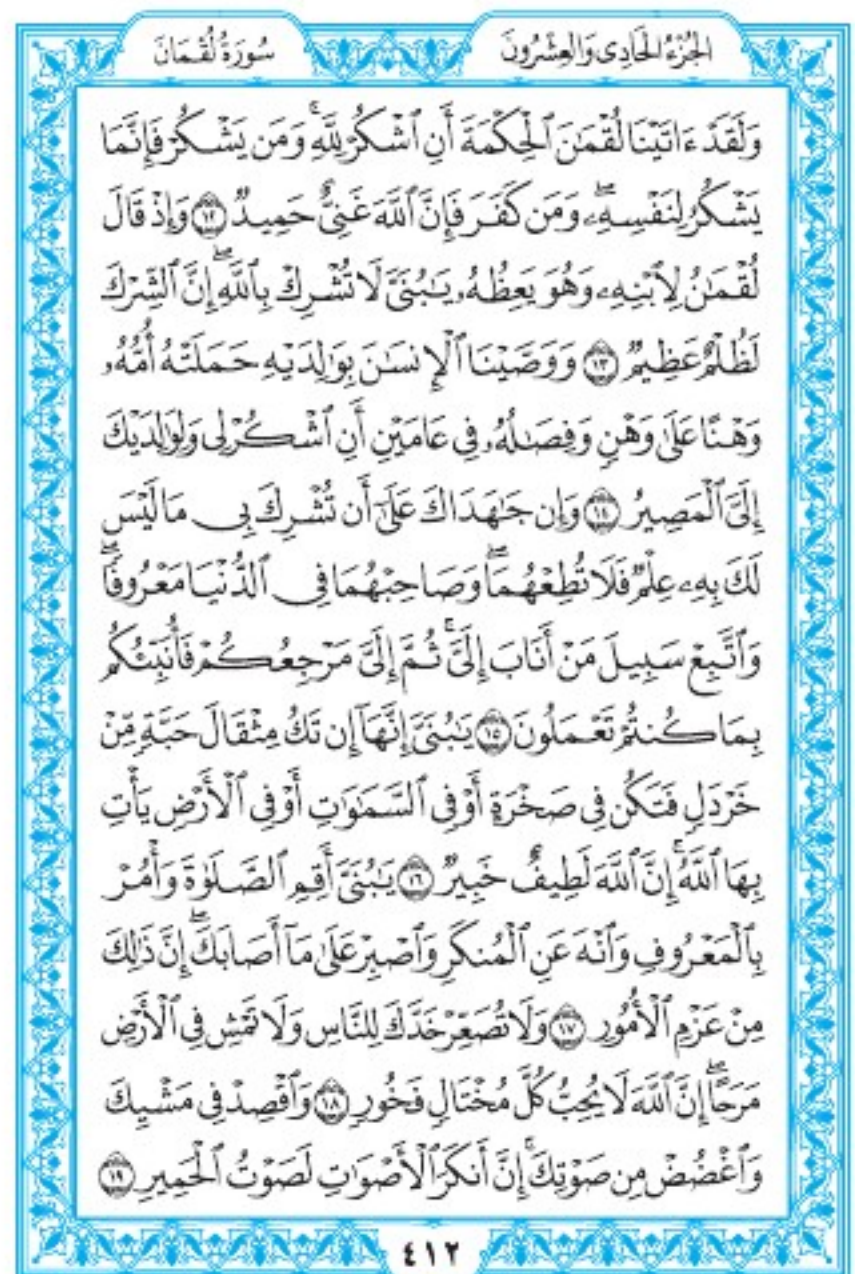 الجُزْءُ الحَادِى وَالعِشْرُونَ
سُورَةُ لُقْمَانَ
وَلَقَدْ ءَاتَيْنَا لُقْمَٰنَ ٱلْحِكْمَةَ أَنِ ٱشْكُرْ لِلَّهِ ۚ وَمَن يَشْكُرْ فَإِنَّمَا
يَشْكُرُ لِنَفْسِهِۦ ۖ وَمَن كَفَرَ فَإِنَّ ٱللَّهَ غَنِىٌّ حَمِيدٌ ﴿١٢﴾ وَإِذْ قَالَ
لُقْمَٰنُ لِٱبْنِهِۦ وَهُوَ يَعِظُهُۥ يَٰبُنَىَّ لَا تُشْرِكْ بِٱللَّهِ ۖ إِنَّ ٱلشِّرْكَ
لَظُلْمٌ عَظِيمٌ ﴿١٣﴾ وَوَصَّيْنَا ٱلْإِنسَٰنَ بِوَٰلِدَيْهِ حَمَلَتْهُ أُمُّهُۥ
وَهْنًا عَلَىٰ وَهْنٍ وَفِصَٰلُهُۥ فِى عَامَيْنِ أَنِ ٱشْكُرْ لِى وَلِوَٰلِدَيْكَ
إِلَىَّ ٱلْمَصِيرُ ﴿١٤﴾ وَإِن جَٰهَدَاكَ عَلَىٰٓ أَن تُشْرِكَ بِى مَا لَيْسَ
لَكَ بِهِۦ عِلْمٌ فَلَا تُطِعْهُمَا ۖ وَصَاحِبْهُمَا فِى ٱلدُّنْيَا مَعْرُوفًا ۖ
وَٱتَّبِعْ سَبِيلَ مَنْ أَنَابَ إِلَىَّ ۚ ثُمَّ إِلَىَّ مَرْجِعُكُمْ فَأُنَبِّئُكُم
بِمَا كُنتُمْ تَعْمَلُونَ ﴿١٥﴾ يَٰبُنَىَّ إِنَّهَآ إِن تَكُ مِثْقَالَ حَبَّةٍ مِّنْ
خَرْدَلٍ فَتَكُن فِى صَخْرَةٍ أَوْ فِى ٱلسَّمَٰوَٰتِ أَوْ فِى ٱلْأَرْضِ يَأْتِ
بِهَا ٱللَّهُ ۚ إِنَّ ٱللَّهَ لَطِيفٌ خَبِيرٌ ﴿١٦﴾ يَٰبُنَىَّ أَقِمِ ٱلصَّلَوٰةَ وَأْمُرْ
بِٱلْمَعْرُوفِ وَٱنْهَ عَنِ ٱلْمُنكَرِ وَٱصْبِرْ عَلَىٰ مَآ أَصَابَكَ ۖ إِنَّ ذَٰلِكَ
مِنْ عَزْمِ ٱلْأُمُورِ ﴿١٧﴾ وَلَا تُصَعِّرْ خَدَّكَ لِلنَّاسِ وَلَا تَمْشِ فِى ٱلْأَرْضِ
مَرَحًا ۖ إِنَّ ٱللَّهَ لَا يُحِبُّ كُلَّ مُخْتَالٍ فَخُورٍ ﴿١٨﴾ وَٱقْصِدْ فِى مَشْيِكَ
وَٱغْضُضْ مِن صَوْتِكَ ۚ إِنَّ أَنكَرَ ٱلْأَصْوَٰتِ لَصَوْتُ ٱلْحَمِيرِ ﴿١٩﴾
٤١٢